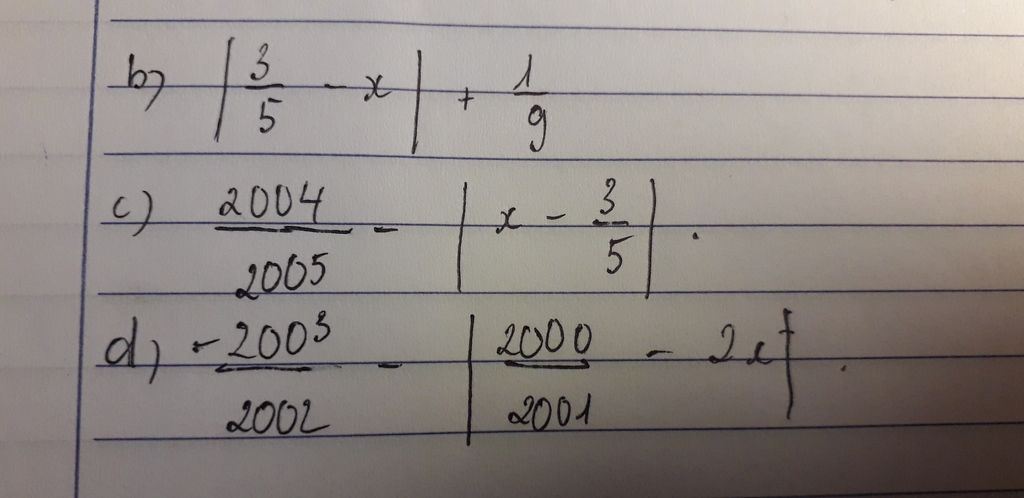 b) | 3/5 - x | + 1/9
c) 2004/2005 - | x - 3/5 | .
d) -2003/2002 - | 2000/2001 - 2x | .